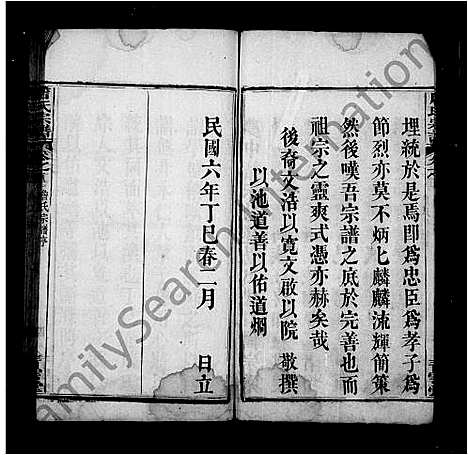 埋統於是焉即為忠臣為孝子為
節烈亦莫不炳匕麟麟流輝簡策
然後嘆吾宗譜之底於完善也而
祖宗之靈爽式憑亦赫矣哉
後裔文浩以寬文啟以院 敬撰
以池道善以佑道炯
民國六年丁巳春二月 日立
氏宗譜
FamilySearch International